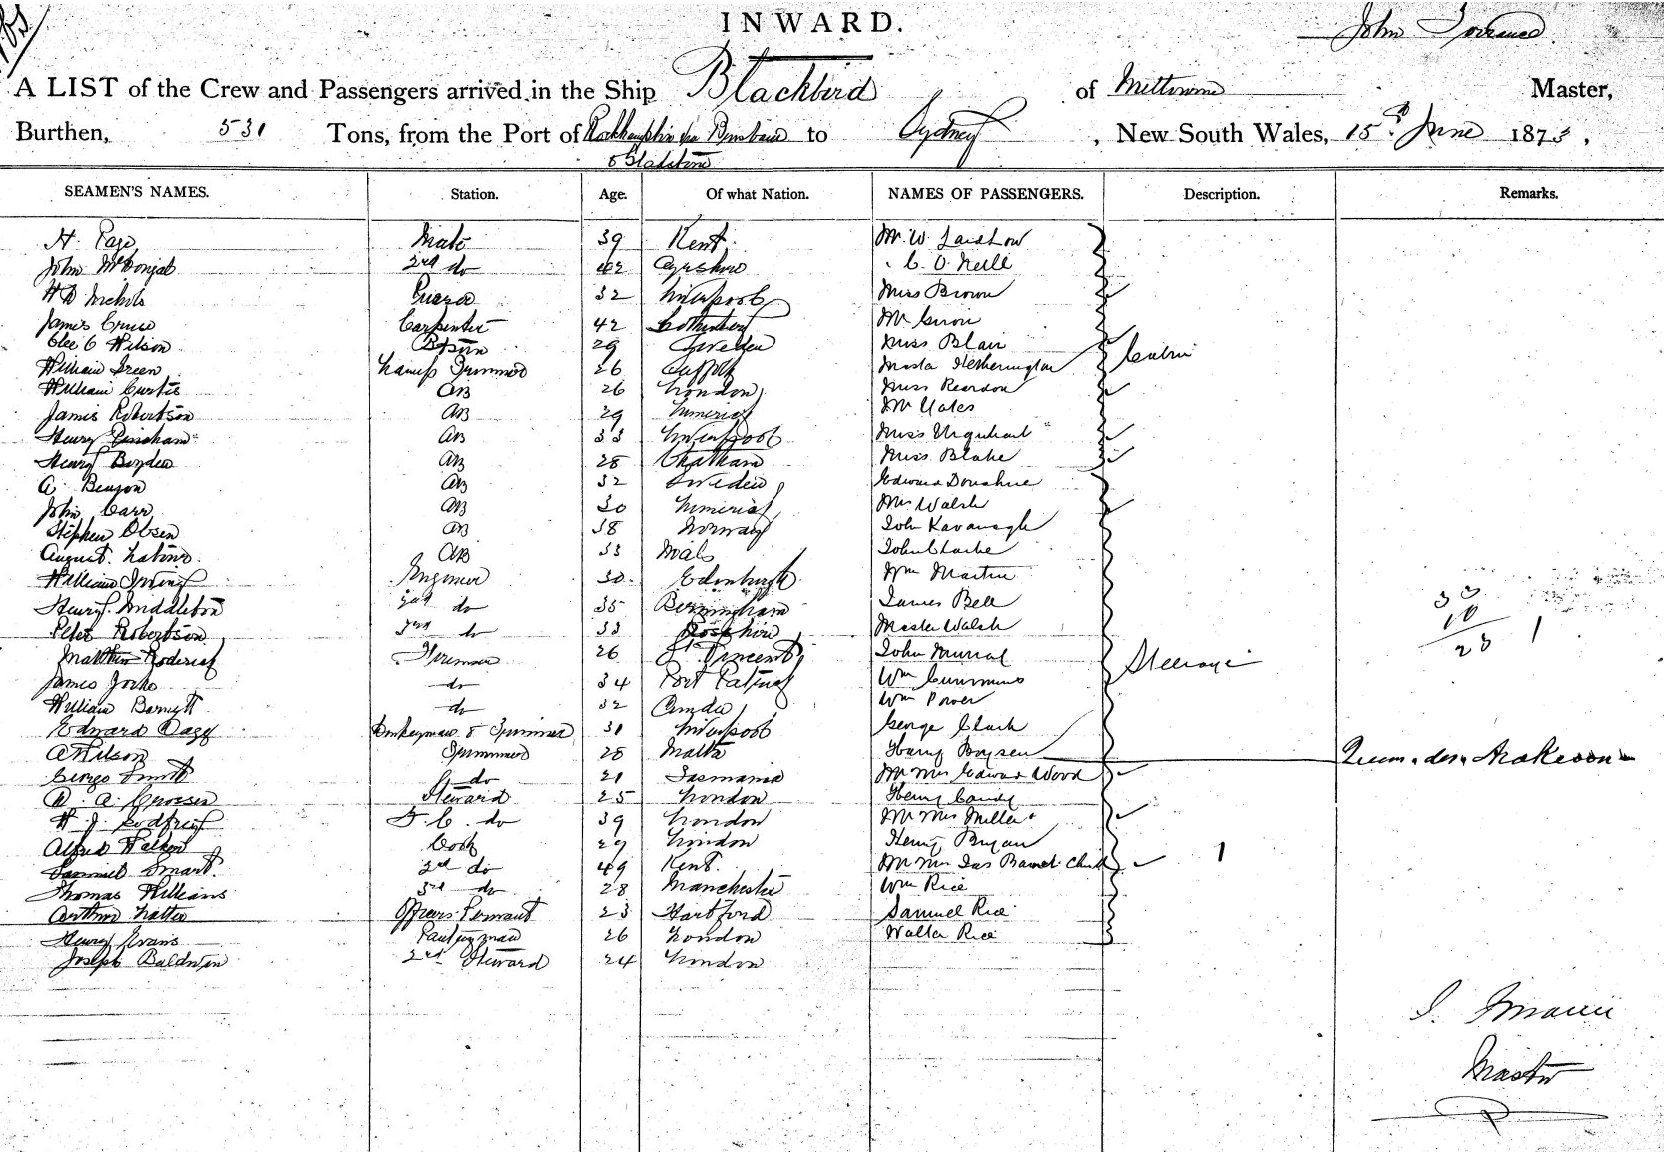 INWARD.
John Torrance
A LIST of the Crew and Passengers arrived in the Ship Blackbird of Melbourne Master,
Burthen, 531 Tons, from the Port of Rockhampton via Brisbane to Sydney, New South Wales, 15th June 1873,
& Gladstone
SEAMEN'S NAMES. Station. Age. Of what Nation. NAMES OF PASSENGERS. Description. Remarks.
H. Page Mate 39 Kent Mr W. Laidlow
John 2nd do 42 Ayrshire C. O. Neill
H D Nichols 32 Liverpool Miss Brown
James Carpenter 42 Mr
Wilson Bosun 29 Sweden Miss Blair
William Green Lamp Trimmer 26 Suffolk Master Hetherington Cabin
William Curtis AB 26 London Miss Reardon
James Robertson AB 29 Limerick Mr Yates
Henry AB 33 Liverpool Miss Urquhart
Henry AB 28 Chatham Miss Blake
A. AB 32 Sweden Edward Donahue
John Carr AB 30 Limerick Mrs Walsh
Stephen Olsen AB 38 Norway John Kavanagh
August AB 33 John Clarke
William Irving Engineer 30 Edinburgh Wm Martin
Henry Middleton 2nd do 35 Birmingham James Bell
Peter Robertson 3rd do 33 Rosshire Master Walsh
Matthew Roderick Fireman 26 St Vincent John Murray Steerage
James do 34 Port Patrick Wm Cummins
William do 32 Wm Power
Edward Dagg Donkeyman & Trimmer 31 Liverpool George Clark
A Wilson Trimmer 28 Malta Harry Boysen
George Smith do 21 Tasmania Mr Mrs Edward Wood
A. Steward 25 London Henry
H. J. Godfrey F. C. do 39 London Mr Mrs Miller
Alfred Walker Cook 29 London Henry Bryan
Samuel Smart 2nd do 49 Kent Mr Mrs Jas Child 1
Thomas Williams 3rd do 28 Manchester Wm Rice
Arthur Officers Servant 23 Hartford Samuel Rice
Henry Evans Pantryman 26 London Walter Rice
Joseph Baldwin 2nd Steward 24 London
33
10
23 1
Master